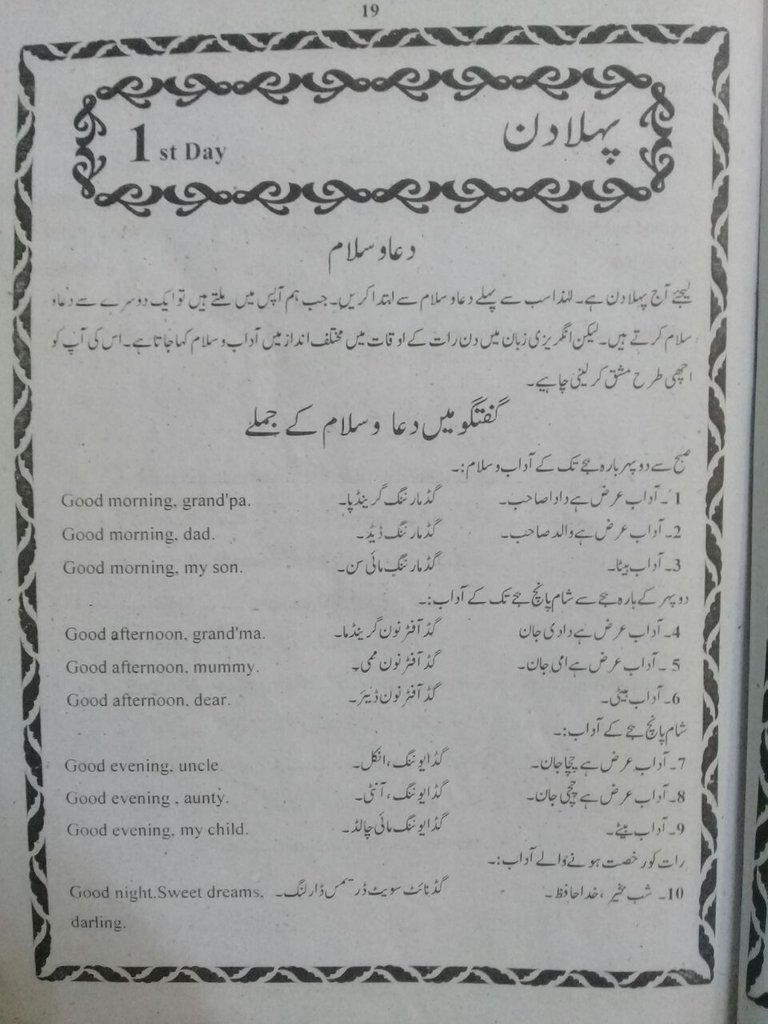 19
1 st Day پہلا دن
دعا و سلام
لیجئے آج پہلا دن ہے۔ لہٰذا سب سے پہلے دعا و سلام سے ابتدا کریں۔ جب ہم آپس میں ملتے ہیں تو ایک دوسرے سے دعا و
سلام کرتے ہیں۔ لیکن انگریزی زبان میں دن رات کے اوقات میں مختلف انداز میں آداب و سلام کہا جاتا ہے۔ اس کی آپ کو
اچھی طرح مشق کر لینی چاہیے۔
گفتگو میں دعا و سلام کے جملے
صبح سے دوپہر بارہ بجے تک کے آداب و سلام:۔
1۔ آداب عرض ہے دادا صاحب۔ گڈ مارننگ گرینڈپا۔ Good morning, grand'pa.
2۔ آداب عرض ہے والد صاحب۔ گڈ مارننگ ڈیڈ۔ Good morning, dad.
3۔ آداب بیٹا۔ گڈ مارننگ مائی سن۔ Good morning, my son.
دوپہر کے بارہ بجے سے شام پانچ بجے تک کے آداب:۔
4۔ آداب عرض ہے دادی جان گڈ آفٹر نون گرینڈما۔ Good afternoon, grand'ma.
5۔ آداب عرض ہے امی جان۔ گڈ آفٹر نون ممی۔ Good afternoon, mummy.
6۔ آداب بیٹی۔ گڈ آفٹر نون ڈیئر۔ Good afternoon, dear.
شام پانچ بجے کے آداب:۔
7۔ آداب عرض ہے چچا جان۔ گڈ ایوننگ، انکل۔ Good evening, uncle.
8۔ آداب عرض ہے چچی جان۔ گڈ ایوننگ، آنٹی۔ Good evening , aunty.
9۔ آداب بیٹے۔ گڈ ایوننگ مائی چائلڈ۔ Good evening, my child.
رات کو رخصت ہونے والے آداب:۔
10۔ شب بخیر، خدا حافظ۔ گڈ نائٹ سویٹ ڈریمس ڈارلنگ۔ Good night.Sweet dreams,
darling.